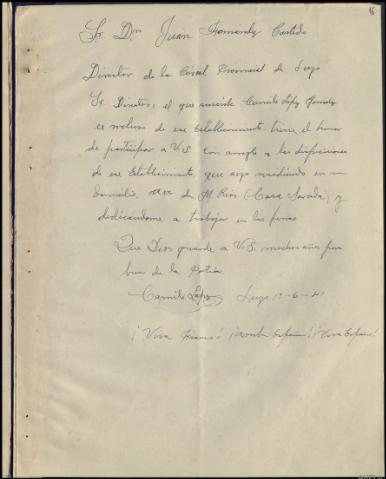 Sr. Don Juan Fernández
Director de la Cárcel Provincial de Lugo
Sr. Director: el que suscribe Camilo López
ex recluso de ese Establecimiento, tiene el honor
de participar a V.S. con arreglo a las disposiciones
de ese Establecimiento, que sigo residiendo en mi
domicilio, de M Rios (Casa Morada) y
dedicandome a trabajar en las
Que Dios guarde a V.S. muchos años para
bien de la Patria.
Camilo López Lugo 1º-6-41
¡Viva Franco! ¡Arriba España! ¡Viva España!